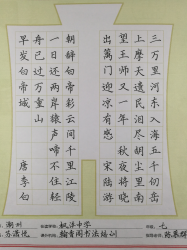 三万里河东入海五千仞岳
上摩天遗民泪尽胡尘里南
望王师又一年 秋夜将晓
出篱门迎凉有感 宋陆游
朝辞白帝彩云间千里江陵
一日还两岸猿声啼不住轻
舟已过万重山
早发白帝城 唐李白
潮州 中学 七
书法培训